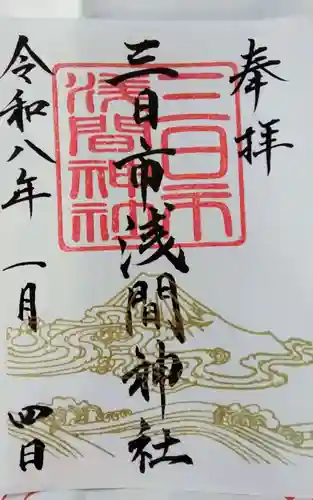 奉拝
三日市浅間神社
三日市
浅間神社
令和八年 一月 四日